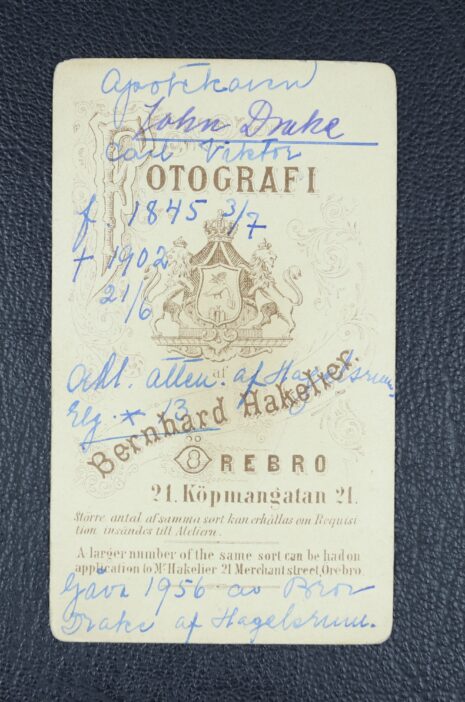 Apothekaren
John Drake
Carl Viktor
FOTOGRAFI
f. 1845 3/7
† 1902
21/6
af
Adl. ätten. af Hagelsrum
Bernhard Hakelier.
ÖREBRO
21. Köpmangatan 21.
Större antal af samma sort kan erhållas om Requisi
tion insändes till Ateliern.
A larger number of the same sort can be had on
application to Mr Hakelier 21 Merchant street, Örebro.
Gåva 1956 av Bror
Drake af Hagelsrum.